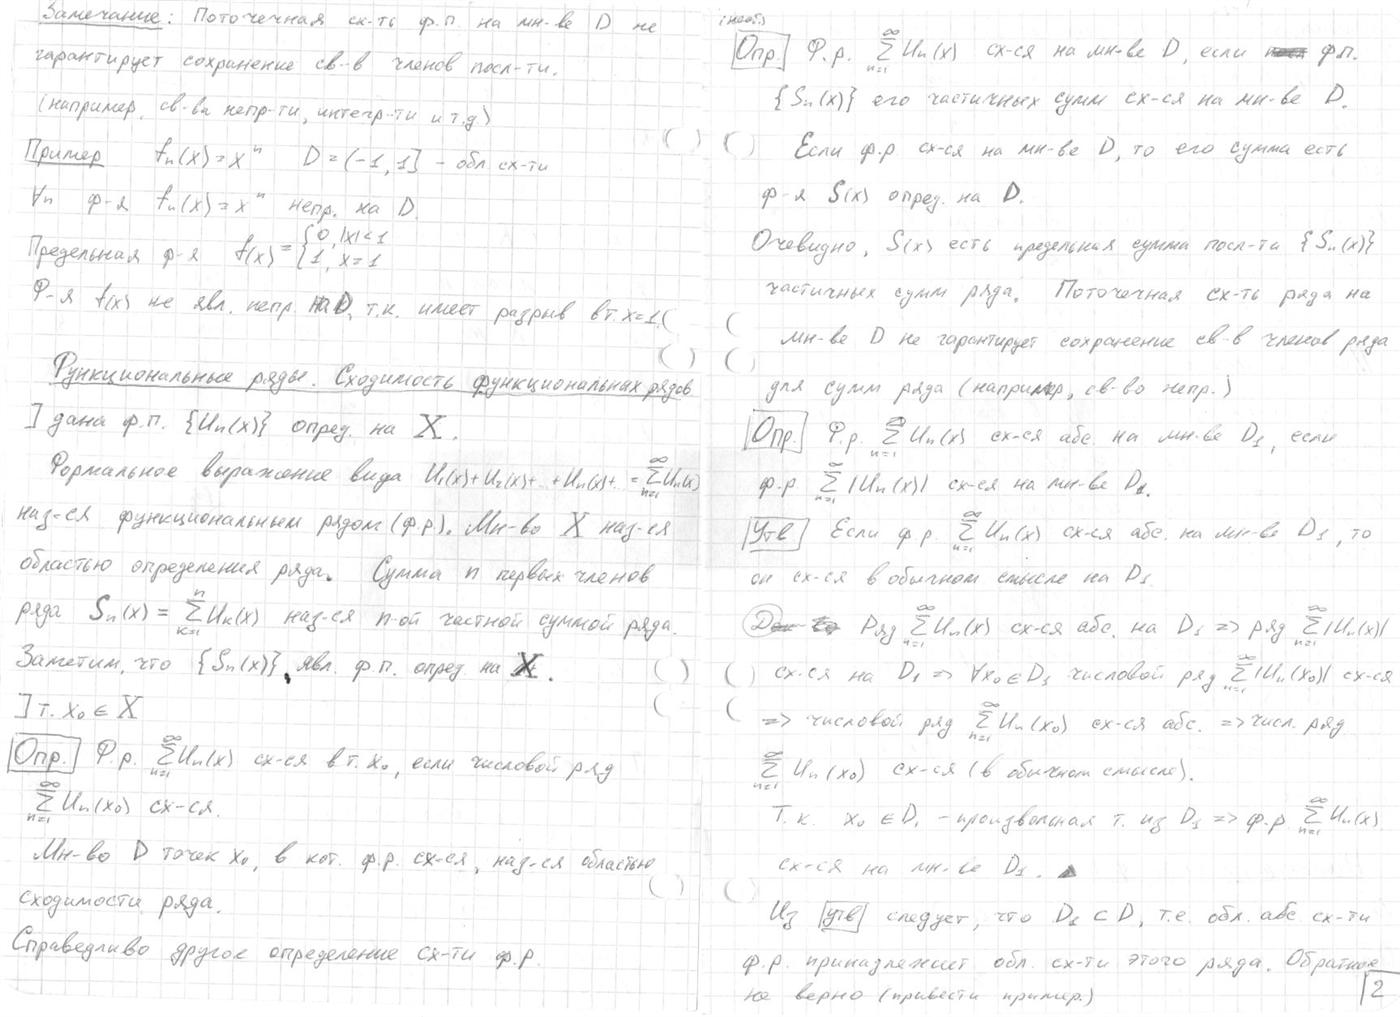 Замечание: Поточечная сх-ть ф.п. на мн-ве D не
гарантирует сохранение св-в членов посл-ти.
(например, св-ва непр-ти, интегр-ти и т.д)
Пример fₙ(x)=xⁿ D=(-1,1] – обл сх-ти
∀n ф-я fₙ(x)=xⁿ непр. на D.
Предельная ф-я f(x) = {0, |x|<1 {1, x=1
Ф-я f(x) не явл. непр. на D, т.к. имеет разрыв в т. x=1.
Функциональные ряды. Сходимость функциональных рядов
] дана ф.п. {Uₙ(x)} опред. на X.
Формальное выражение вида U₁(x)+U₂(x)+..+Uₙ(x)+ = ∑ₙ₌₁^∞ Uₙ(x)
наз-ся функциональным рядом (ф.р). Мн-во X наз-ся
областью определения ряда. Сумма n первых членов
ряда Sₙ(x) = ∑ₖ₌₁ⁿ Uₖ(x) наз-ся n-ой частной суммой ряда.
Заметим, что {Sₙ(x)}, явл. ф.п. опред. на X.
] т. x₀ ∈ X
Опр. Ф.р. ∑ₙ₌₁^∞ Uₙ(x) сх-ся в т. x₀, если числовой ряд
∑ₙ₌₁^∞ Uₙ(x₀) сх-ся.
Мн-во D точек x₀, в кот. ф.р. сх-ся, наз-ся областью
сходимости ряда.
Справедливо другое определение сх-ти ф.р.
Опр. Ф.р. ∑ₙ₌₁^∞ Uₙ(x) сх-ся на мн-ве D, если ф.п.
{Sₙ(x)} его частичных сумм сх-ся на мн-ве D.
Если ф.р сх-ся на мн-ве D, то его сумма есть
ф-я S(x) опред. на D.
Очевидно, S(x) есть предельная сумма посл-ти {Sₙ(x)}
частичных сумм ряда. Поточечная сх-ть ряда на
мн-ве D не гарантирует сохранение св-в членов ряда
для сумм ряда (например, св-во непр.)
Опр. Ф.р. ∑ₙ₌₁^∞ Uₙ(x) сх-ся абс. на мн-ве D₁, если
ф.р ∑ₙ₌₁^∞ |Uₙ(x)| сх-ся на мн-ве D₁.
Утв Если ф.р. ∑ₙ₌₁^∞ Uₙ(x) сх-ся абс. на мн-ве D₁, то
он сх-ся в обычном смысле на D₁.
Ряд ∑ₙ₌₁^∞ Uₙ(x) сх-ся абс. на D₁ => ряд ∑ₙ₌₁^∞ |Uₙ(x)|
сх-ся на D₁ => ∀x₀∈D₁ числовой ряд ∑ₙ₌₁^∞ |Uₙ(x₀)| сх-ся
=> числовой ряд ∑ₙ₌₁^∞ Uₙ(x₀) сх-ся абс. => числ. ряд
∑ₙ₌₁^∞ Uₙ(x₀) сх-ся (в обычном смысле).
Т.к. x₀ ∈ D₁ – произвольная т. из D₁ => ф.р. ∑ₙ₌₁^∞ Uₙ(x)
сх-ся на мн-ве D₁. ▲
Из Утв следует, что D₁ ⊂ D, т.е. обл. абс сх-ти
ф.р. принадлежит обл. сх-ти этого ряда. Обратное
не верно (привести пример.)
2